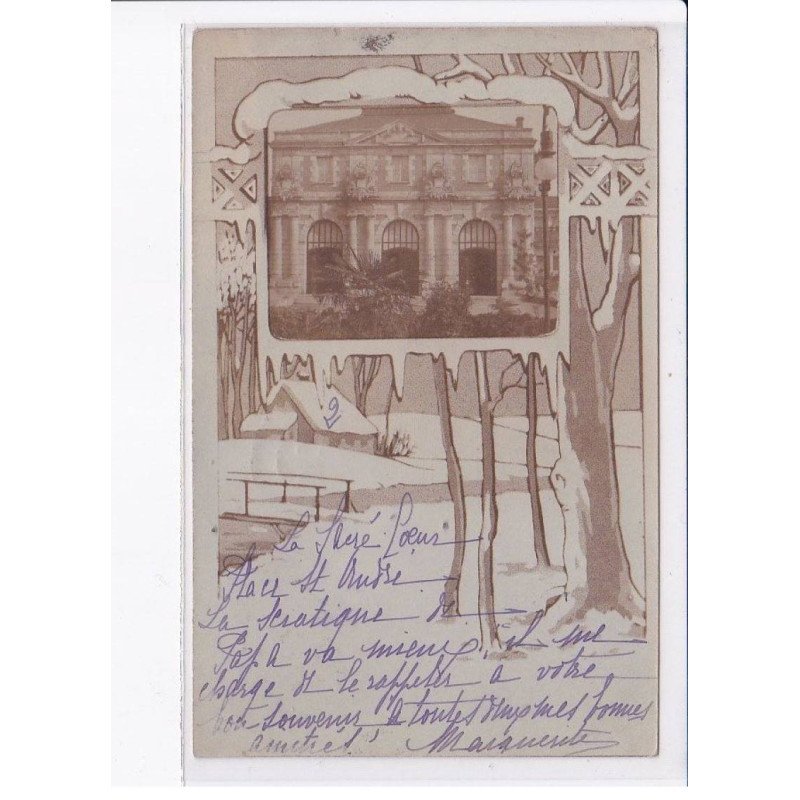 2
La Sacré Cœur
Place St André
La Sciatique de
Papa va mieux, il me
charge de le rappeler à votre
bon souvenir. A toutes deux mes bonnes
amitiés! Marguerite